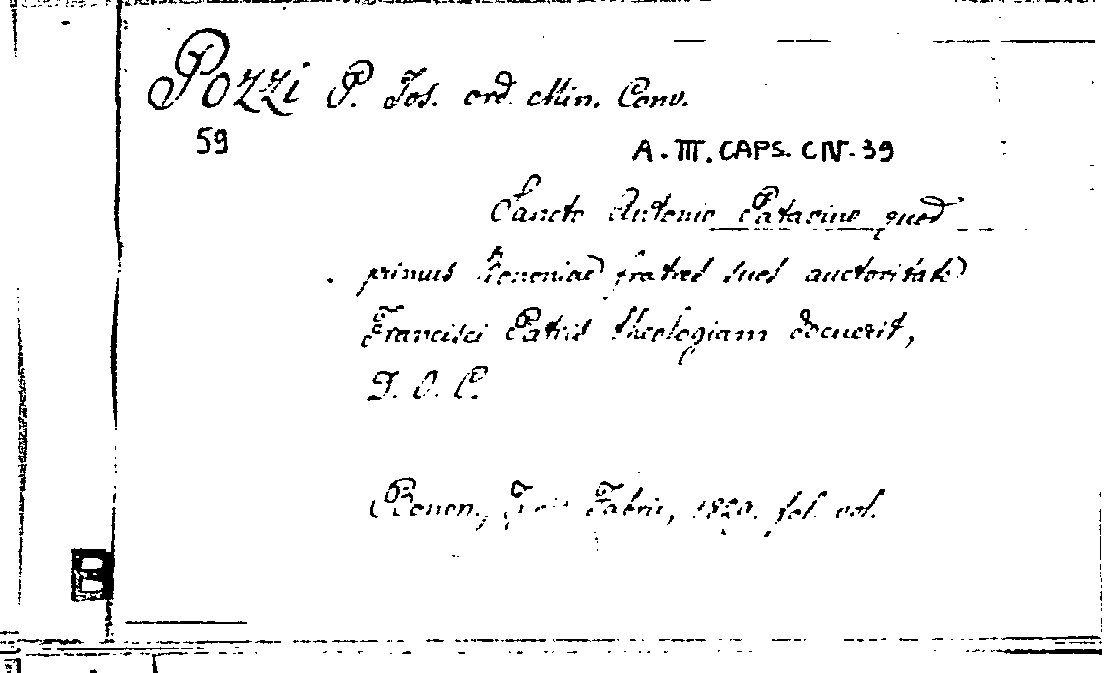 Pozzi P. Jos. ord. Min. Conv.
59
A. III. CAPS. CIV. 39
Sancto Antonio Patavino quod
primus Bononiae fratres suos auctoritate
Francisci Patris theologiam docuerit,
D. O. C.
Bonon., Fabri, 1820. fol. vol.
B